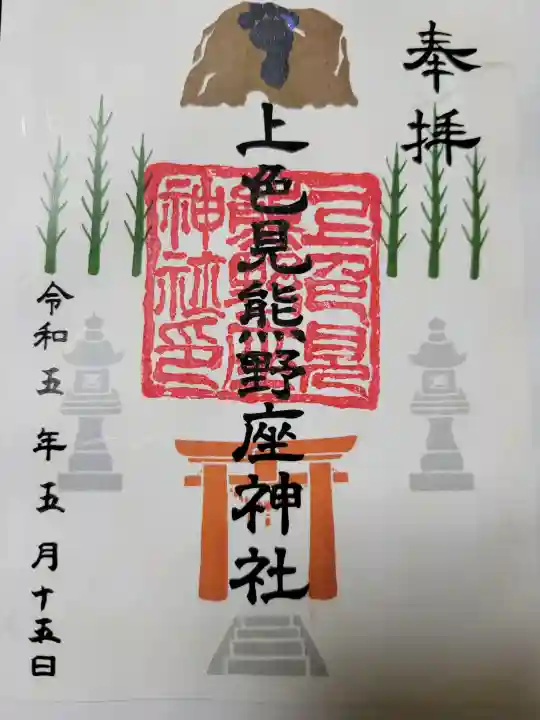 奉拝
上色見熊野座神社
上色見熊野座神社印
令和五年五月十五日